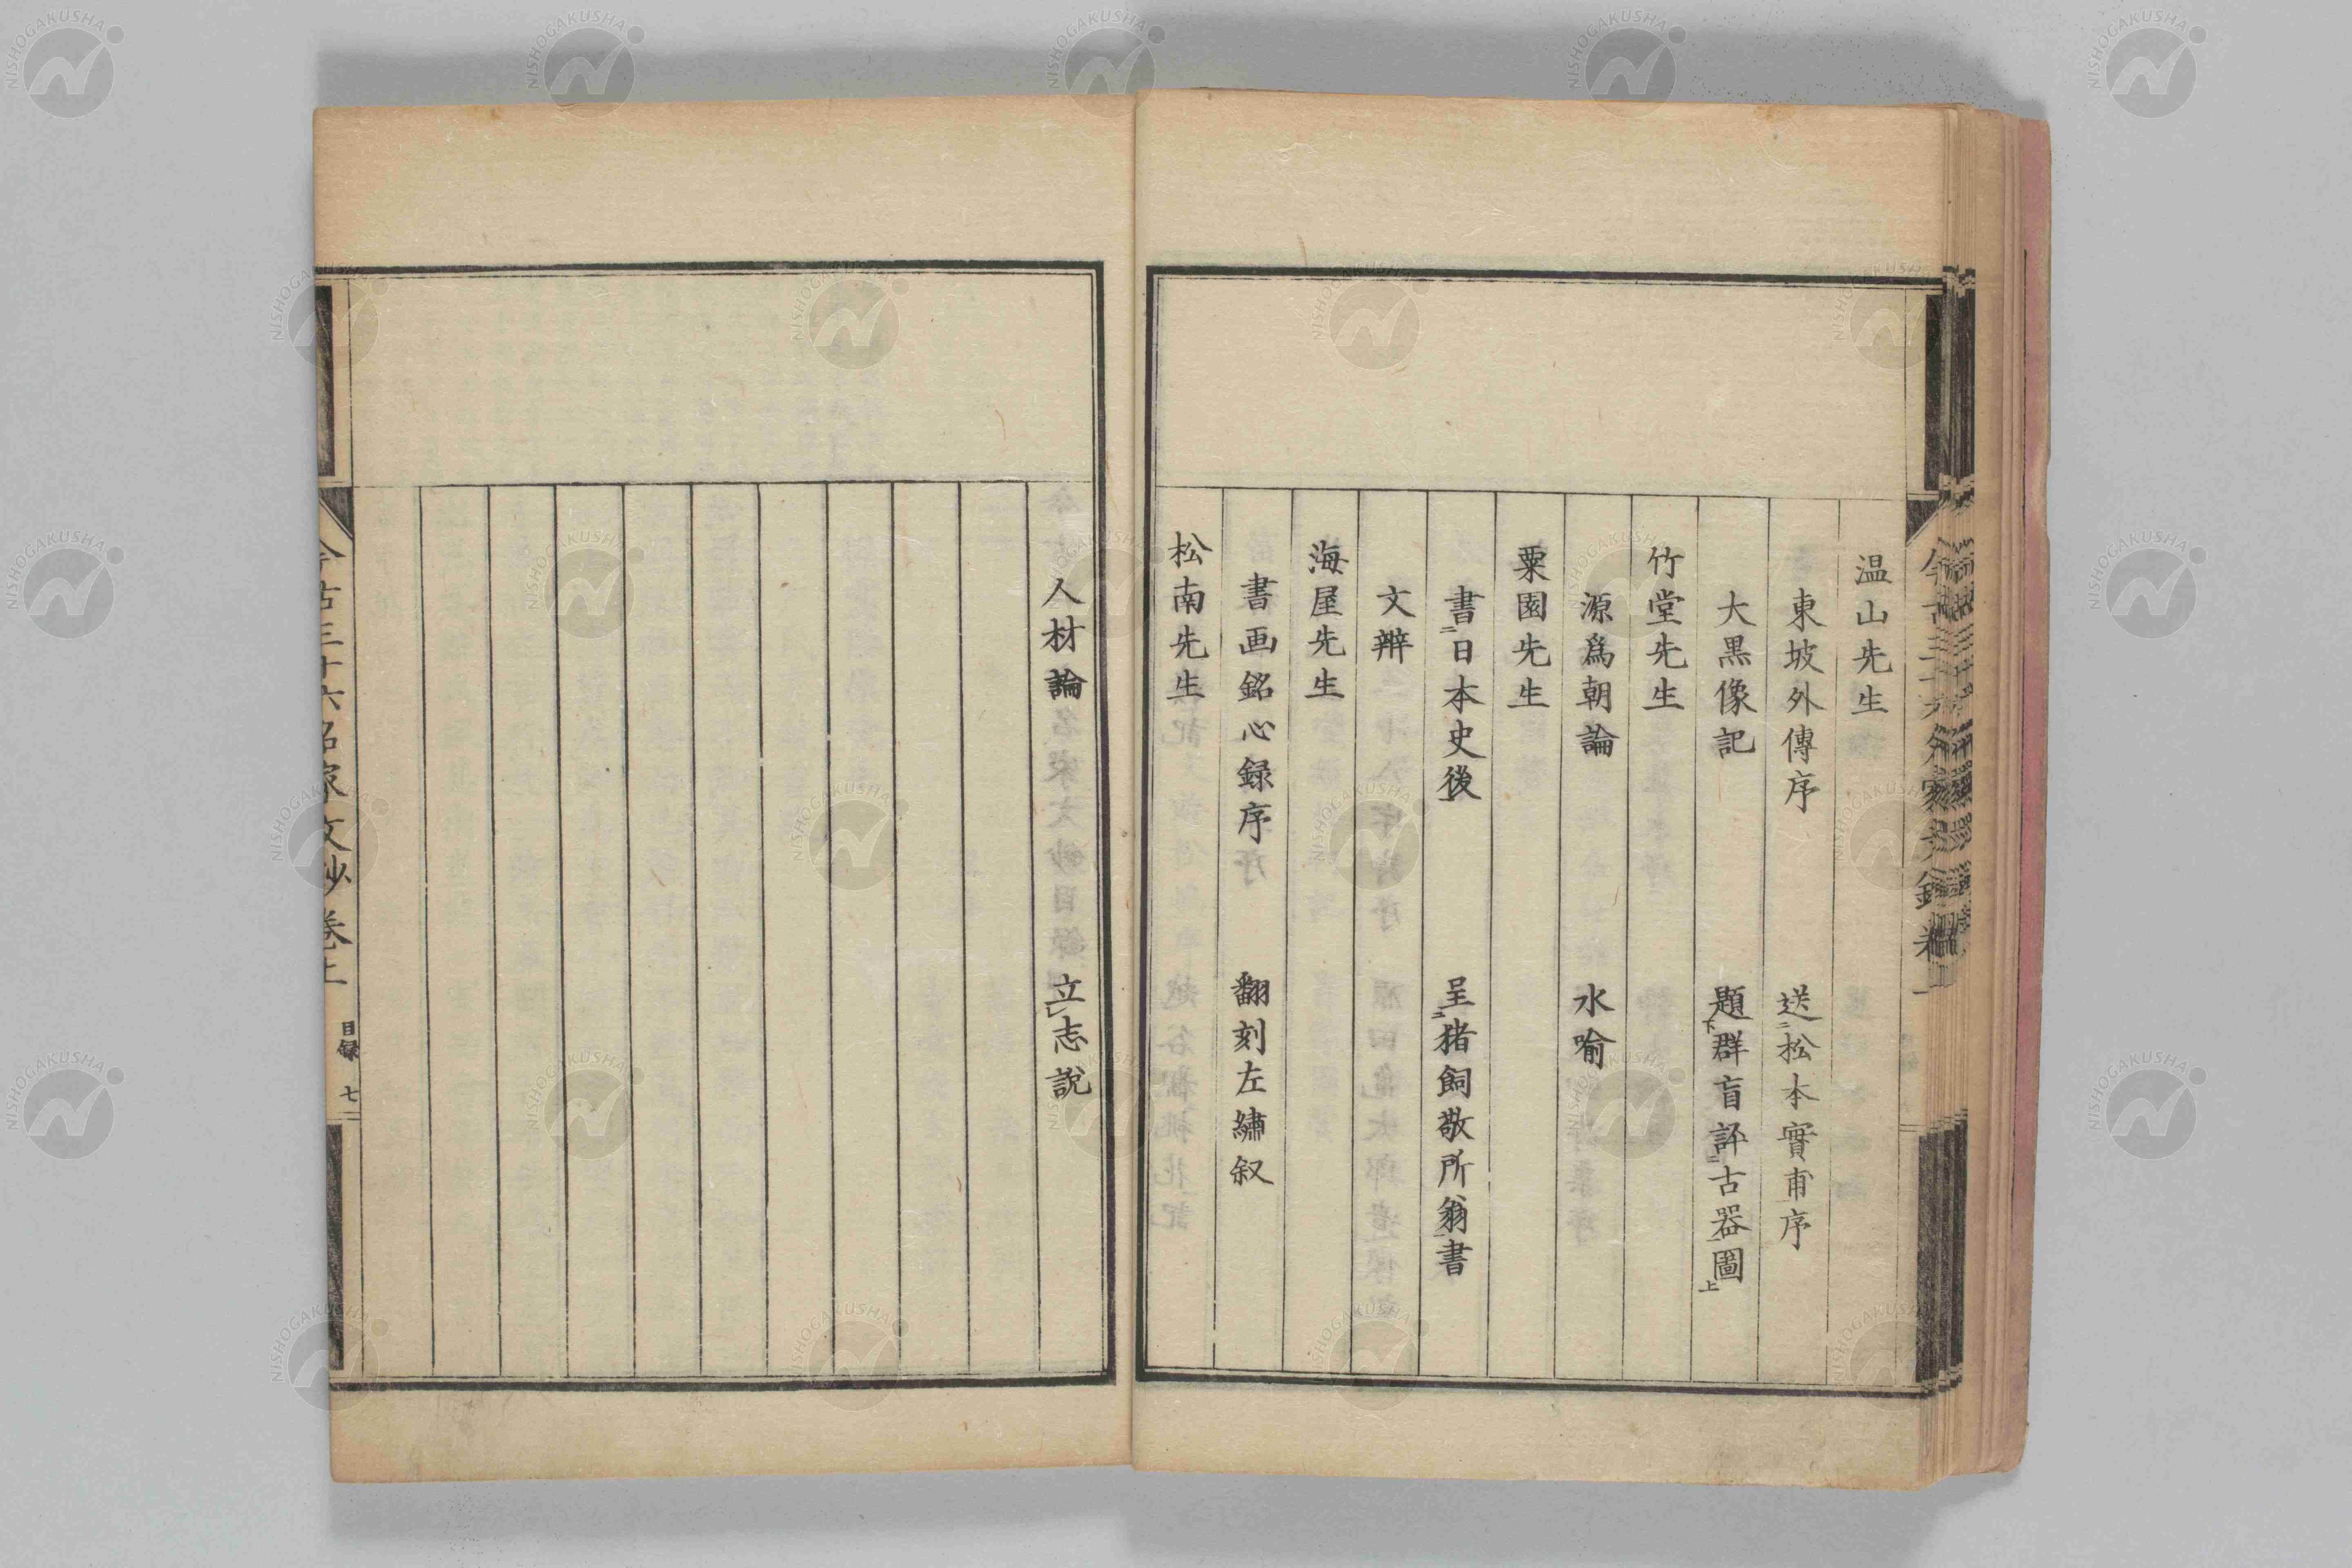 温山先生
東坡外傳序　送二松本實甫序
大黒像記　題下群盲評二古器一圖上
竹堂先生
源爲朝論　水喻
粟園先生
書二日本史後一　呈二猪飼敬所翁一書
文辨
海屋先生
書画銘心録序　翻刻左繡叙
松南先生
人材論　立レ志説
今古三十六名家文抄卷上　目録　七
NISHOGAKUSHA